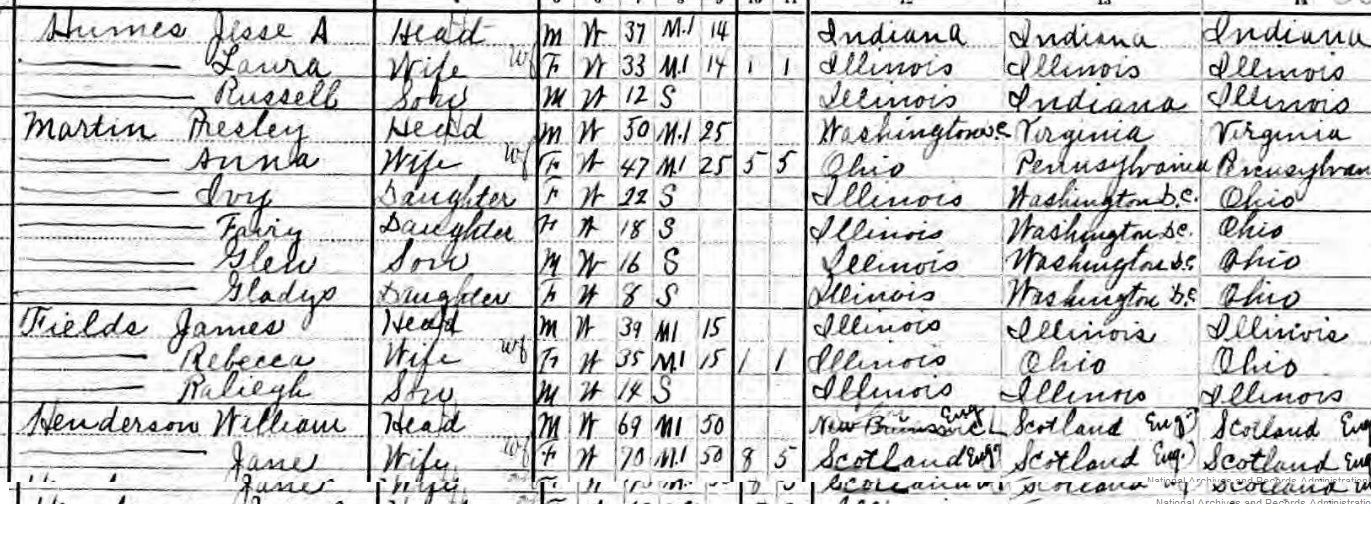 Humes Jesse A Head M W 37 M.1 14 Indiana Indiana Indiana
Laura Wife wf F W 33 M.1 14 1 1 Illinois Illinois Illinois
Russell Son M W 12 S Illinois Indiana Illinois
Martin Presley Head M W 50 M.1 25 Washington D.C. Virginia Virginia
Anna Wife wf F W 47 M1 25 5 5 Ohio Pennsylvania Pennsylvan
Ivy Daughter F W 22 S Illinois Washington D.C. Ohio
Fairy Daughter F W 18 S Illinois Washington D.C. Ohio
Glen Son M W 16 S Illinois Washington D.C. Ohio
Gladys Daughter F W 8 S Illinois Washington D.C. Ohio
Fields James Head M W 39 M1 15 Illinois Illinois Illinois
Rebecca Wife wf F W 35 M.1 15 1 1 Illinois Ohio Ohio
Raliegh Son M W 14 S Illinois Illinois Illinois
Henderson William Head M W 69 M1 50 New Eng Scotland Eng Scotland Eng
Jane Wife wf F W 70 M.1 50 8 5 Scotland Eng Scotland Eng Scotland Eng
National Archives and Records Administration
National Archives and Records Administration